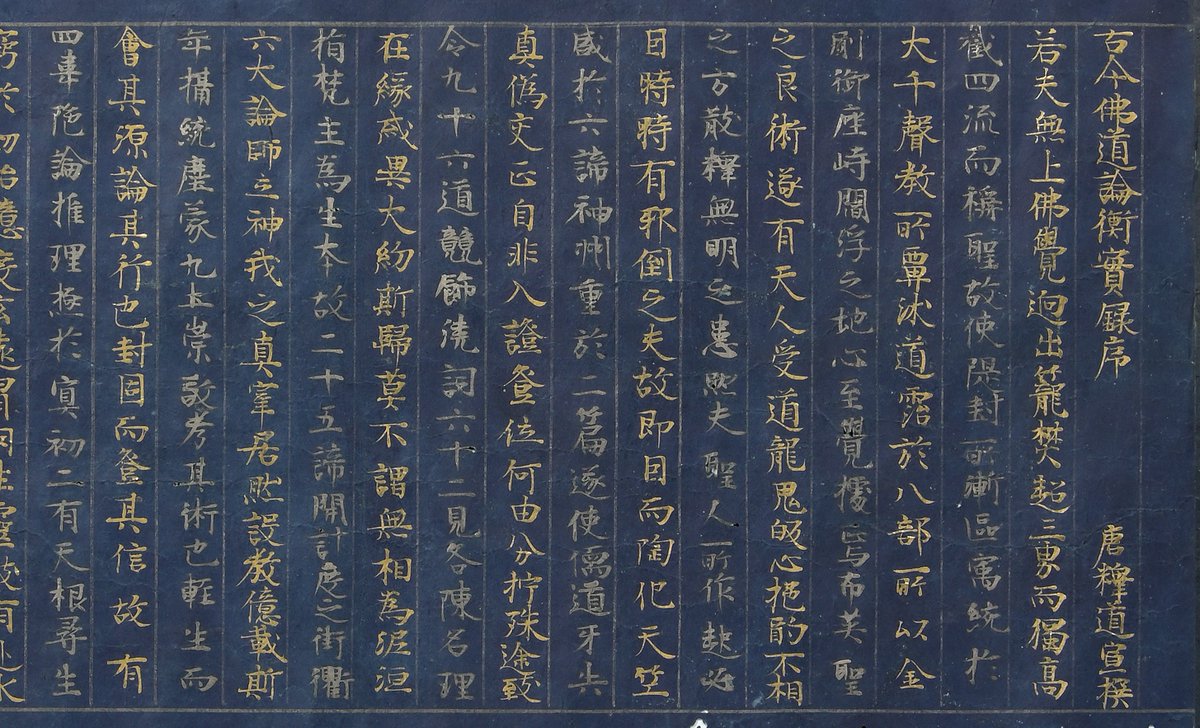 古今佛道論衡實錄序 唐釋道宣撰
若夫無上佛覺逈出籠樊超三界而獨高
截四流而稱聖故使隄封所漸區寓統於
大千聲教所覃沐道霑於八部所以金
剛御座峙閻浮之地心至覺據焉布英聖
之良術遂有天人受道龍鬼皈心挹酌不相
之方散釋無明之患然夫聖人所作起必
因時時有邪倒之夫故即因而陶化天竺
盛於六諦神州重於二篇遂使儒道牙尖
真偽交正自非入證登位何由分拧殊途致
令九十六道競飾澆詞六十二見各陳名理
在緣或異大約斯歸莫不謂無相為泥洹
指梵主為生本故二十五諦開計度之街衢
六大論師立神我之真宰居然設教億載斯
年攝統塵蒙九土崇敬考其術也輕生而
會其源論其行也封固而登其信故有
四韋陁論推理極於冥初二有天根尋生
窮於初始